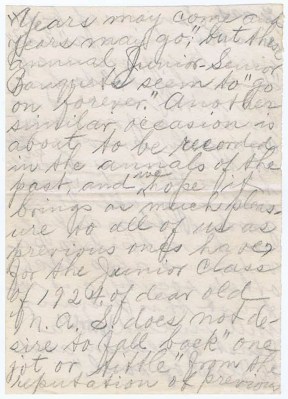 "Years may come and
years may go," but these
annual Junior-Senior
Banquets seem to "go
on forever." Another
similar occasion is
about to be recorded
in the annals of the
past, and we hope it
brings as much pleas-
ure to all of us as
previous ones have,
for the Junior Class
of 1924, of dear old
"N. A. S. does not de-
sire to fall back" one
jot or tittle" from the
reputation of previous